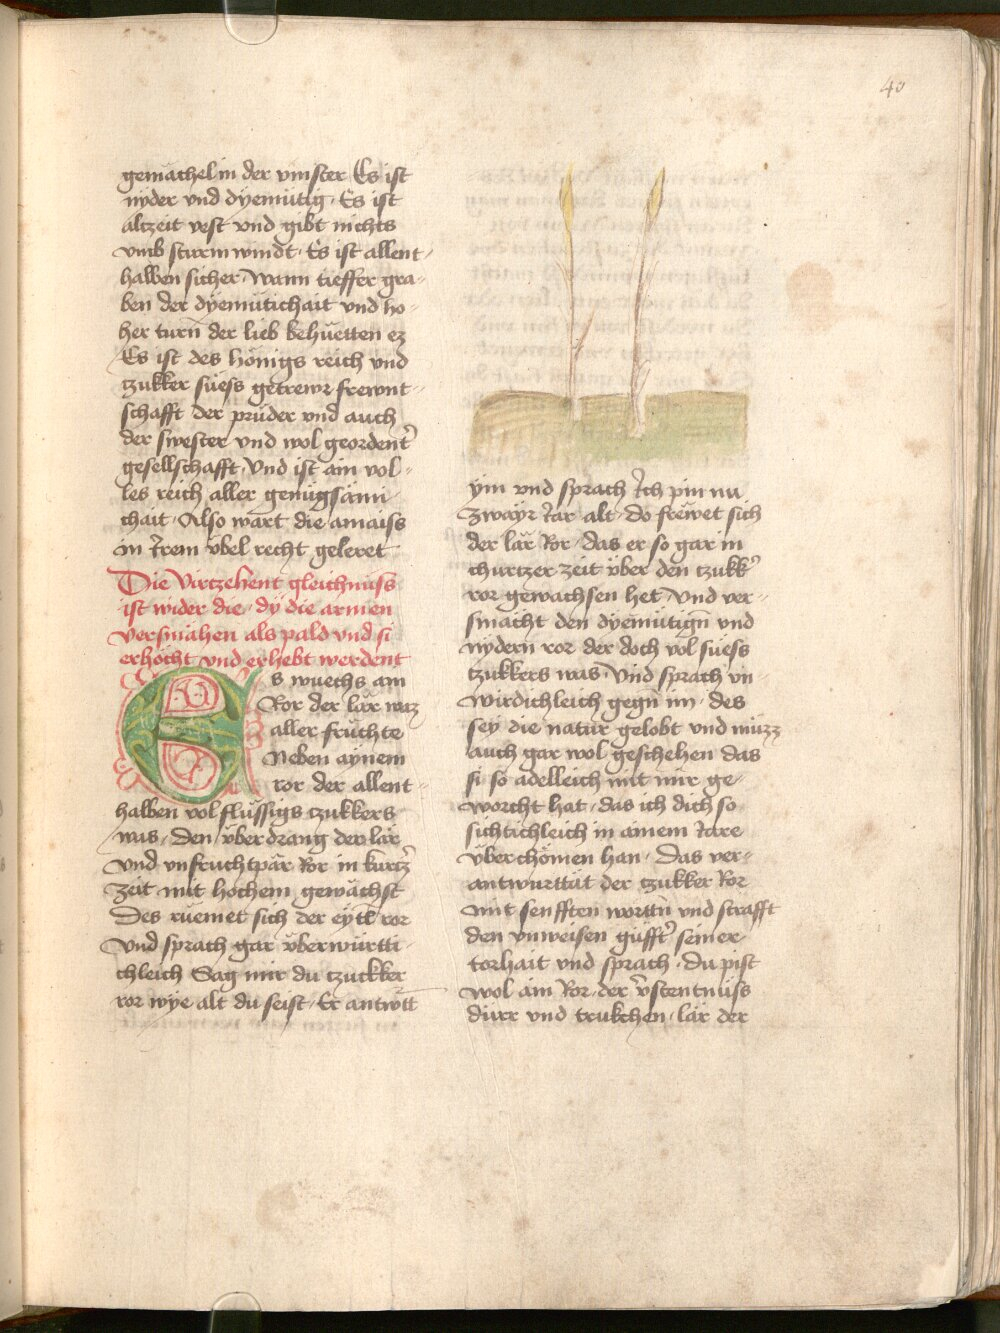 40
gemächel in der vinster Es ist
nyder vnd dyemütig · Es ist
alczeit vest vnd gibt nichts
vmb sturm windt · Es ist allent-
halben sicher · Wann tieffer gra-
ben der dyemütichait vnd ho-
her turn der lieb behuetten ez
Es ist des hönigs reich vnd
czukker süess getrewr frewnt-
schafft der prüder vnd auch
der swester vnd wol geordent'
gesellschafft · Vnd ist ain vol-
les reich aller genügsämi-
chait · Also wart die amaiss
in irem übel recht geleret
Die Virczehent gleichnüss
ist wider die · dy die armen
versmähen als pald vnd si
erhöcht vnd erhebt werdent
Es wuechs ain
Ror der lär waz
aller früchte
Neben aynem
ror der allent-
halben vol flüssigs czukkers
was · Den überdrang der lär
vnd vnfruchtpär Ror in kurcz'
zeit mit hochem gewächst
Des rüemet sich der eytl ror
Vnd sprach gar überwürtti-
chleich Sag mir du czuckker
ror wye alt du seist · Er antwurtt
ym vnd sprach Ich pin nu
zwayr Iar alt · do frewet sich
der lär Ror · das er so gar in
churczer zeit über den czukk'
ror gewachsen het · Vnd ver-
smächt den dyemütign vnd
nydern ror der doch vol süess
czukkers was · Vnd sprach vn-
wirdichleich gegn im · des
sey die natur gelobt vnd müzz
auch gar wol geschehen das
si so adelleich mit mir ge-
worcht hat · das ich dich so
sichtichleich in ainem Iare
überchömen han · Das ver-
antwurttät der czukker Ror
mit senfften worttn vnd strafft
den vnweisen güfft' seiner
torhait vnd sprach · Du pist
wol ain Ror · der v'stentnüss
dürr vnd trukchen · lär der